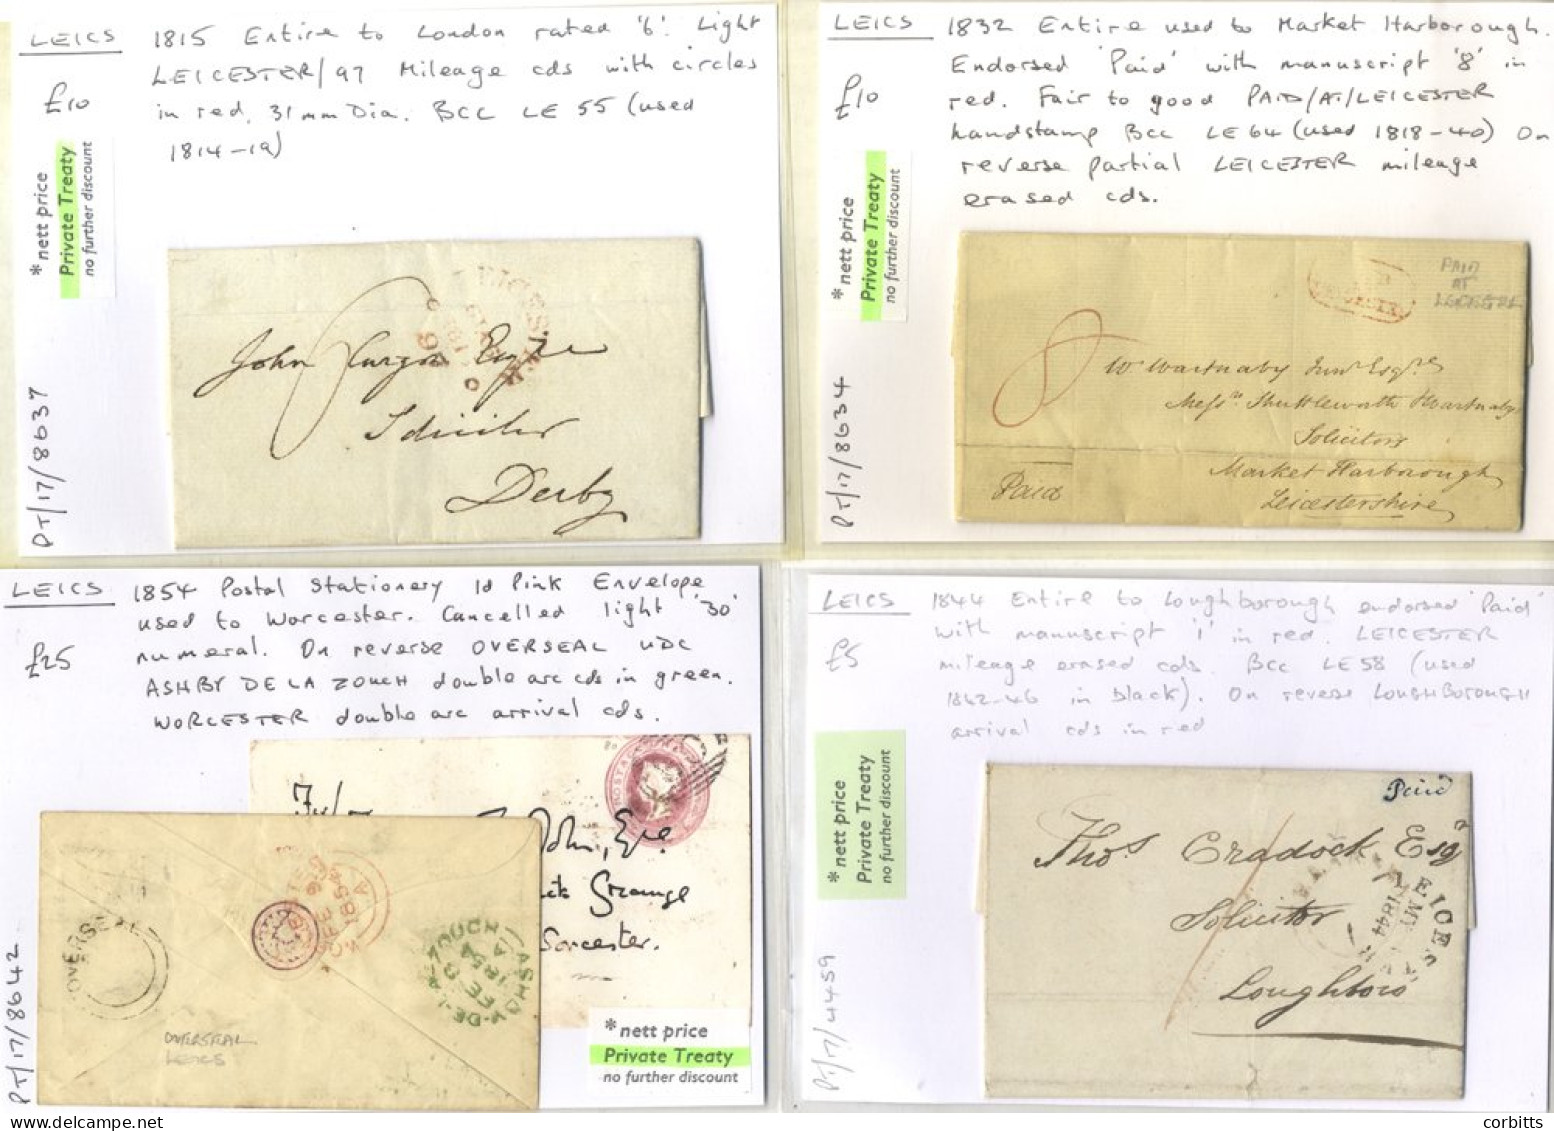 LEICS
£10
1815 Entire to London rated '6'. Light
LEICESTER/97 Mileage cds with circles
in red. 31mm Dia. BCC LE 55 (used
1814-19)
*nett price
Private Treaty
no further discount
PT/17/8637
John Curzon Esqre
Solicitor
Derby
LEICS
£10
1832 Entire used to Market Harborough.
Endorsed 'Paid' with manuscript '8' in
red. Fair to good PAID/AT/LEICESTER
handstamp BCC LE64 (used 1818-40) On
reverse partial LEICESTER mileage
erased cds.
*nett price
Private Treaty
no further discount
PT/17/8634
PAID
AT
LEICESTER
8
W Wartnaby Junr Esqre
Messrs Shuttleworth & Wartnaby
Solicitors
Market Harborough
Leicestershire
Paid
LEICS
£25
1854 Postal Stationery 1d Pink Envelope
used to Worcester. Cancelled light '30'
numeral. On reverse OVERSEAL UDC
ASHBY DE LA ZOUCH double arc cds in green.
WORCESTER double arc arrival cds.
PT/17/8642
OVERSEAL
ASHBY-DE-LA-ZOUCH
FE
1854
A
OVERSEAL
LEICS
Worcester.
*nett price
Private Treaty
no further discount
LEICS
£5
1844 Entire to Loughborough endorsed 'Paid'
with manuscript '1' in red. LEICESTER
mileage erased cds. BCC LE58 (used
1842-46 in black). On reverse LOUGHBOROUGH
arrival cds in red
*nett price
Private Treaty
no further discount
PT/17/4459
Paid
Thos Cradock Esqr
Solicitor
Loughboro'
LEICESTER
MY
1844
corbitts